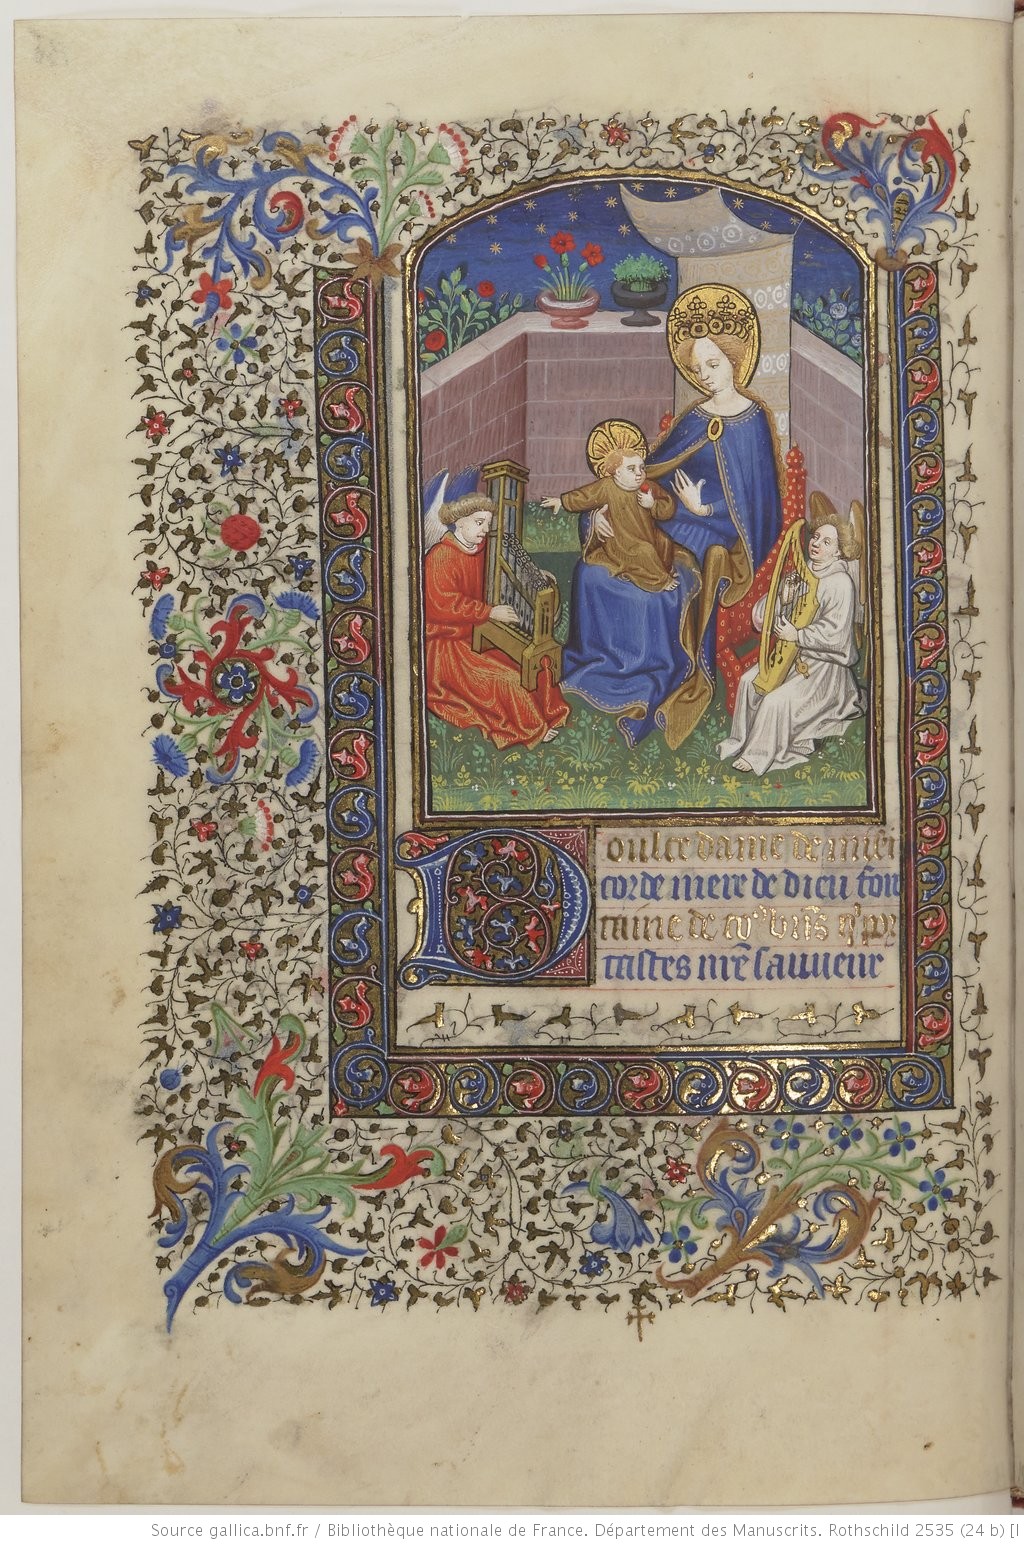 Doulce dame de misei
corde mere de dieu fon
taine de to9 biēs q' por
tastes nr̄e sauueur
Source gallica.bnf.fr / Bibliothèque nationale de France. Département des Manuscrits. Rothschild 2535 (24 b) [l